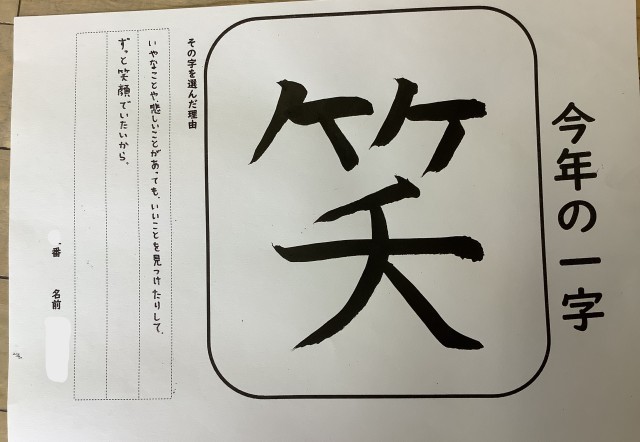 今年の一字
笑
その字を選んだ理由
いやなことや、悲しいことがあっても、いいことを見つけたりして、
ずっと笑顔でいたいから。
番 名前